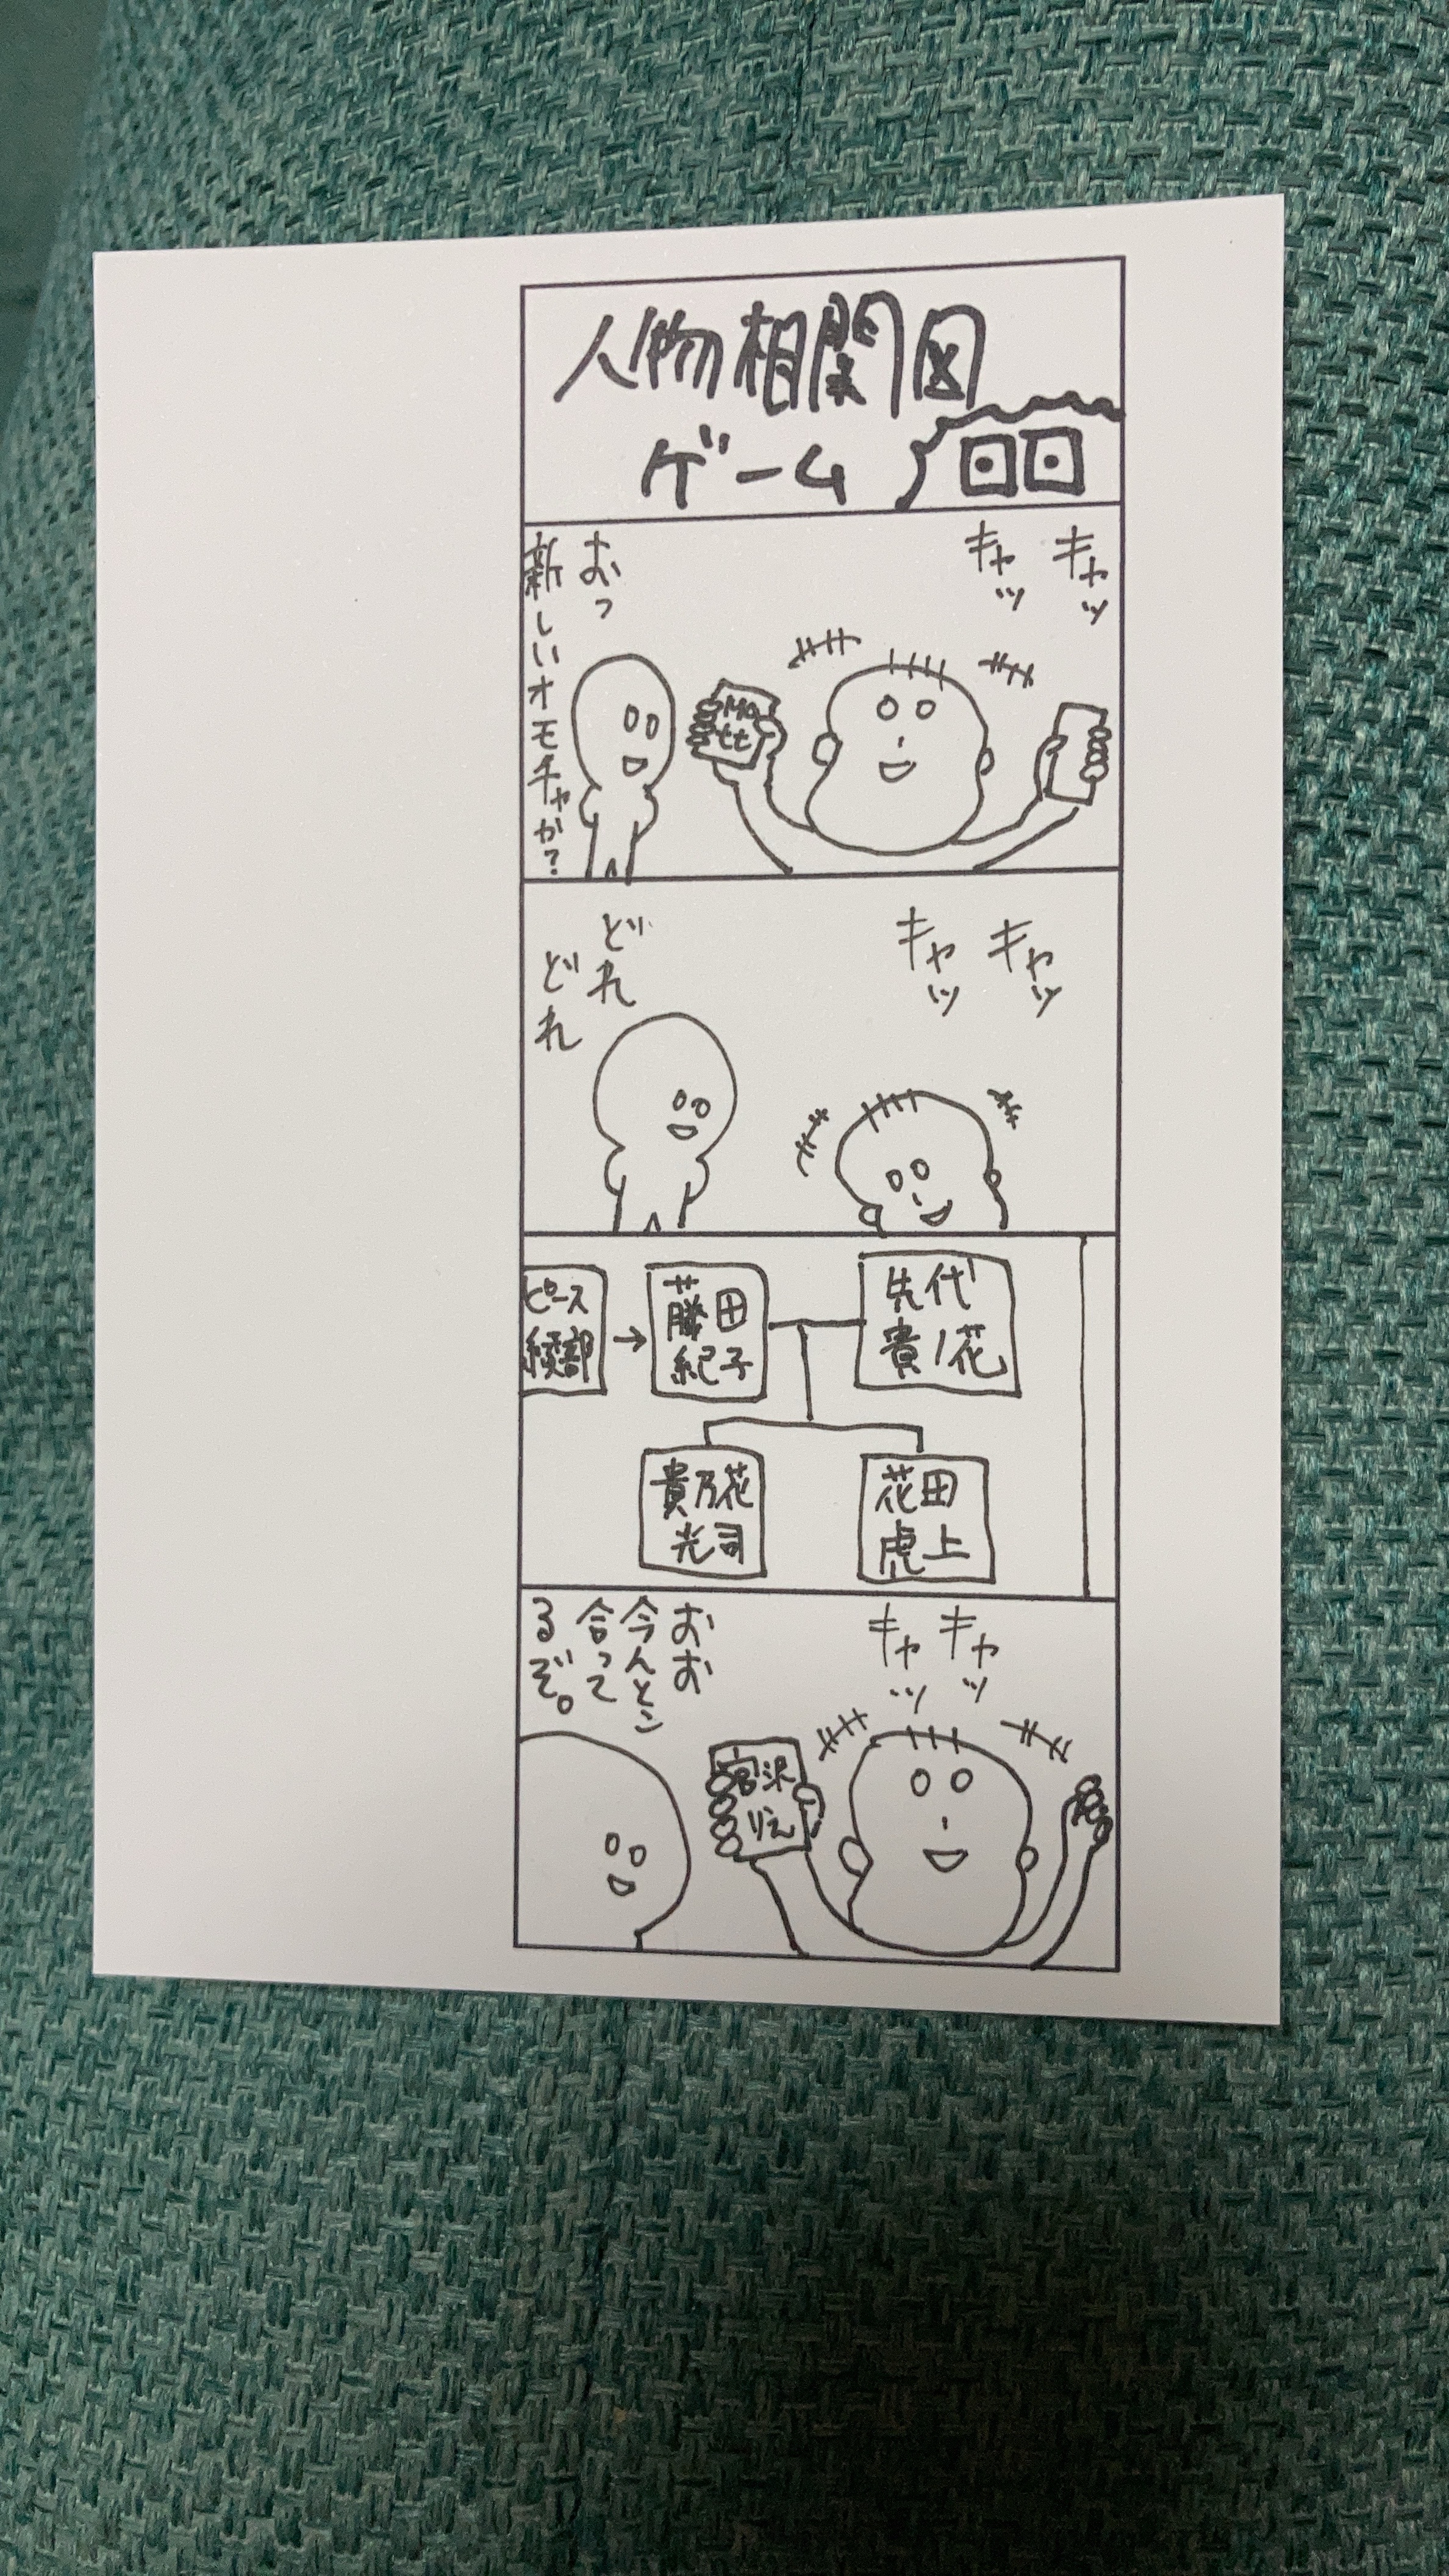 人物相関図
ゲーム
キャッ
キャッ
Mo
tt
おっ
新しいオモチャか?
キャッ
キャッ
どれ
どれ
先代
貴ノ花
藤田
紀子
ピース
綾部
→
花田
虎上
貴乃花
光司
キャッ
キャッ
宮沢
りえ
おお
今んとこ
合って
るぞ。